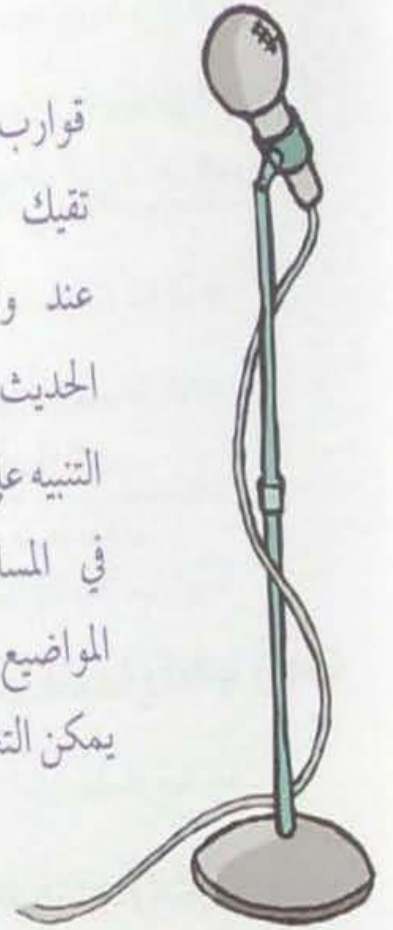 قوارب
تقيك
عند و
الحديث
التنبيه عل
في المسا
المواضيع
يمكن الت